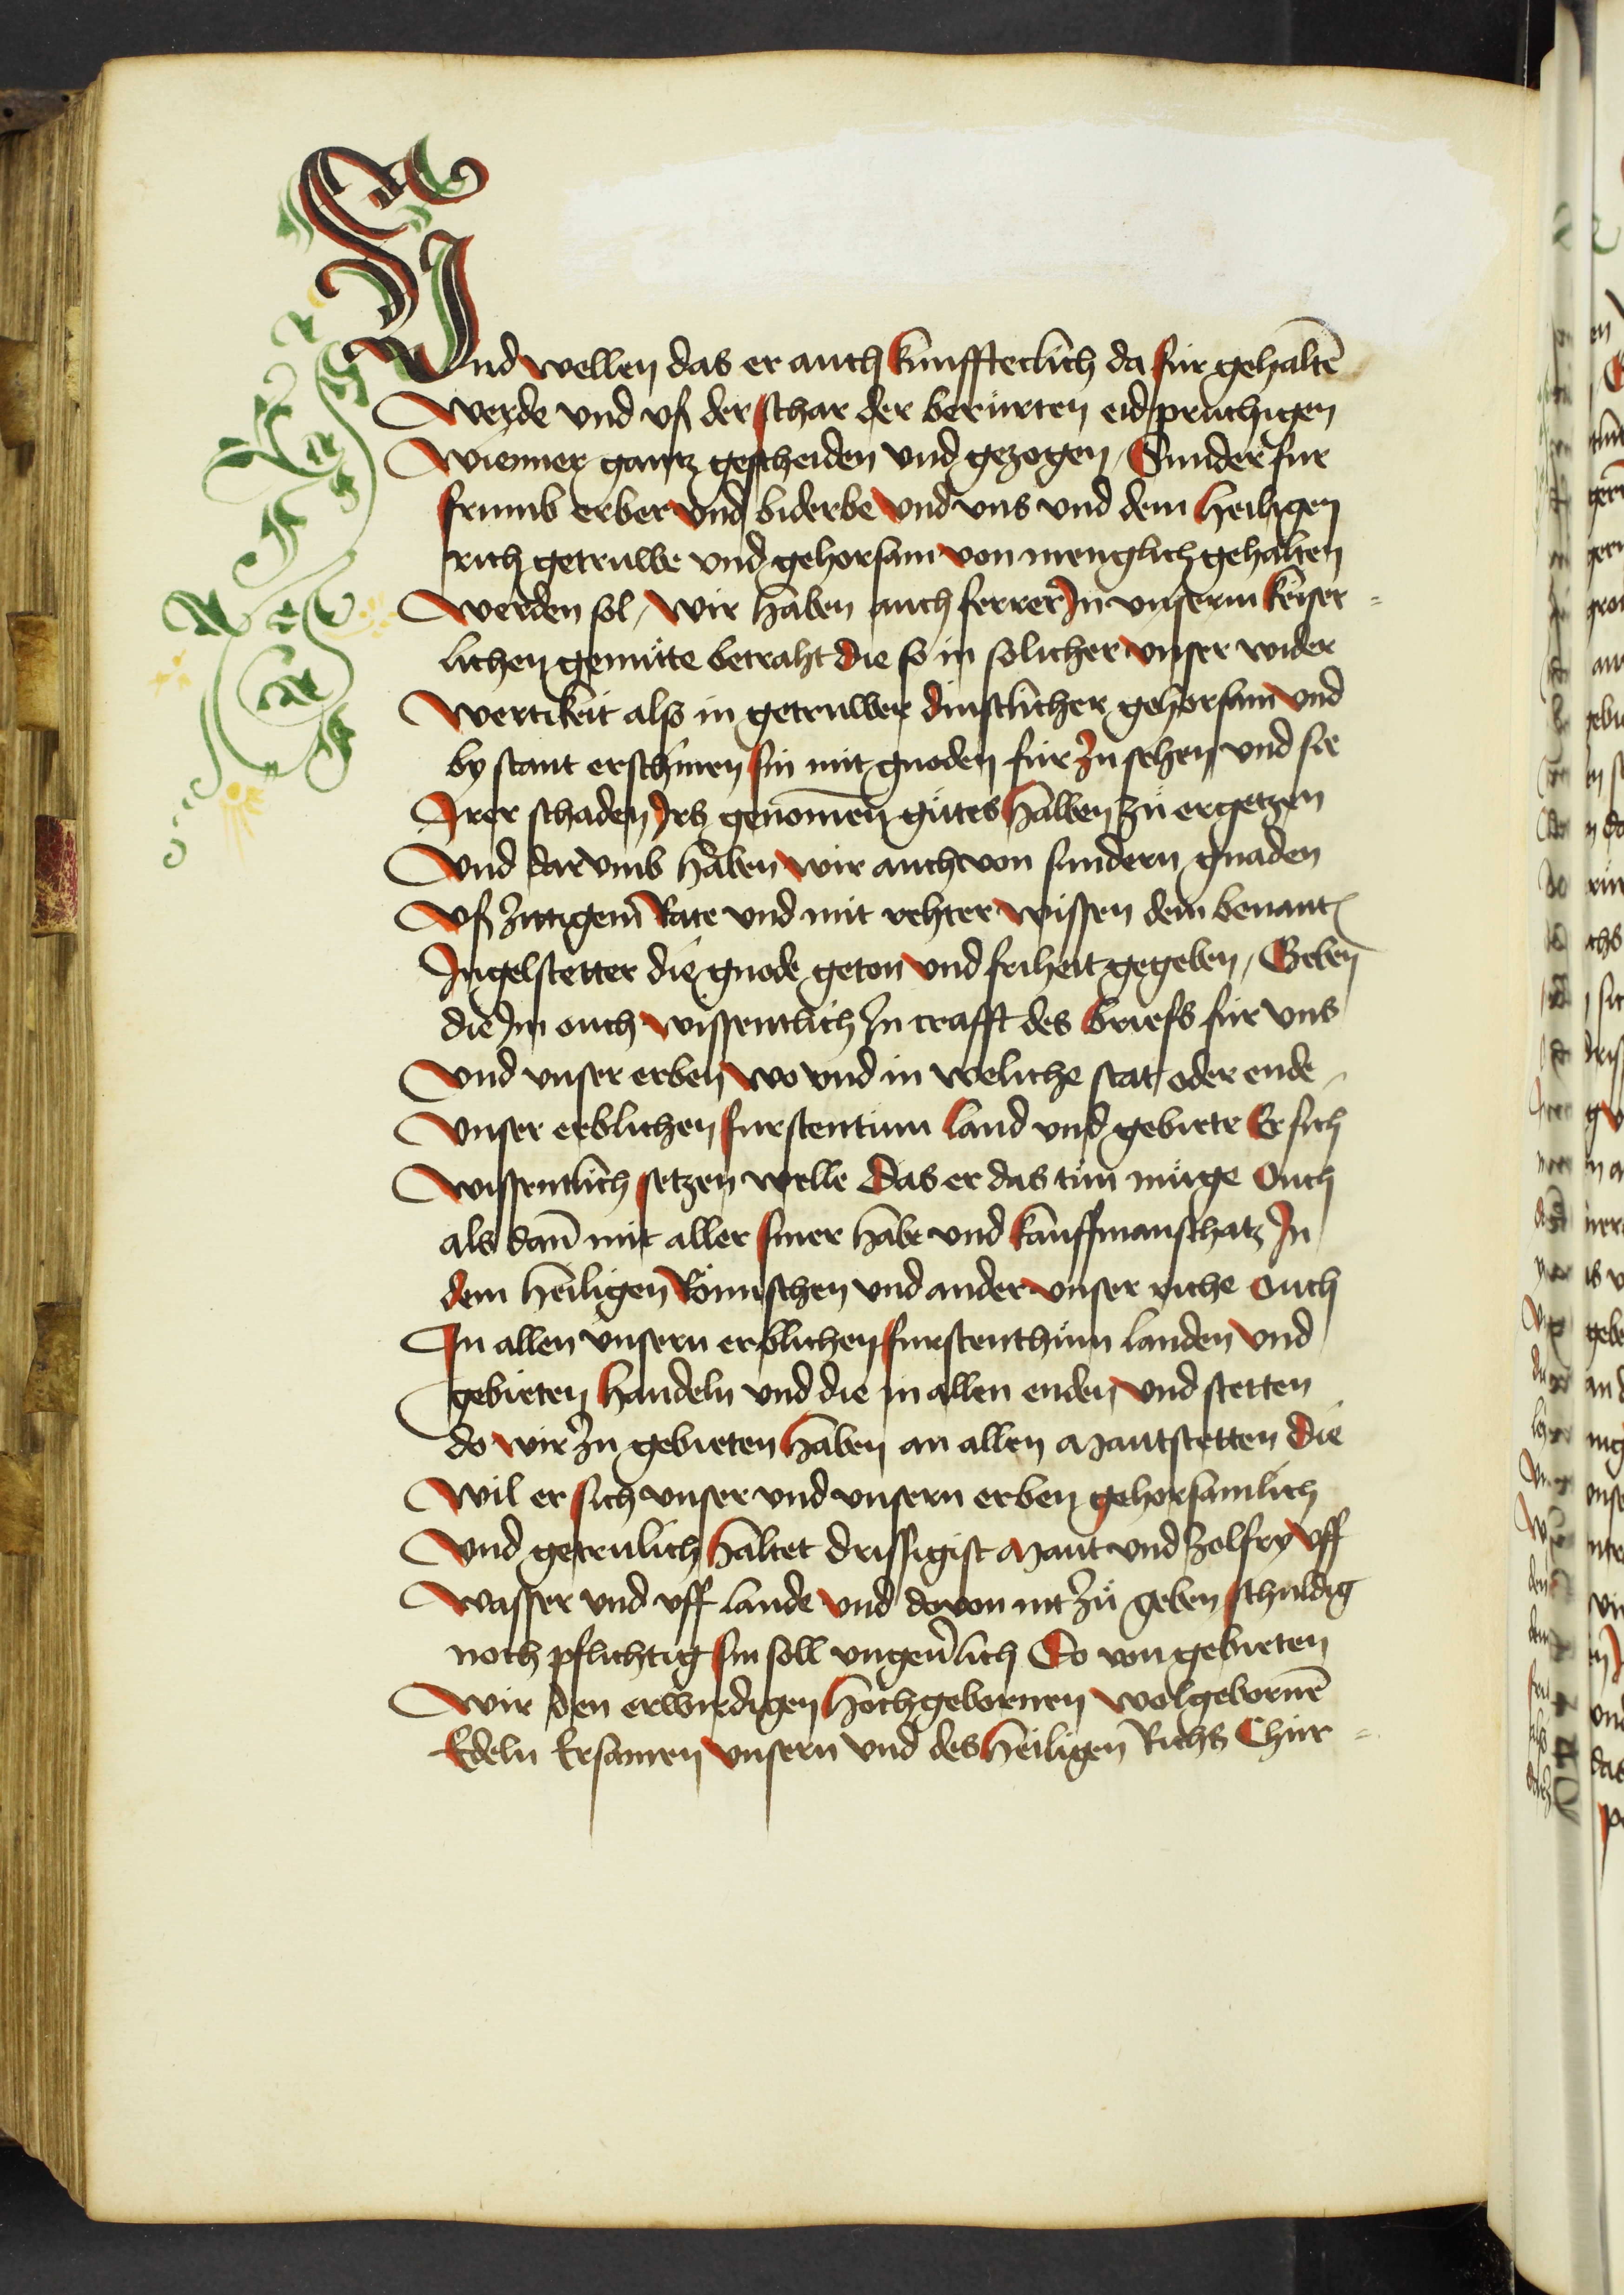 Vnd wellen das er auch kunfftecklich da für gehaltē
werde vnd vß der schar der berürten eidprüchigen
wienner gantz gescheiden vnd gezogen / Sunder fur
frumb erber vnd biderbe vnd vns vnd dem heiligen
rich getruwe vnd gehorsam von menglich gehalten
werden sol / wir haben auch ferrer Jn vnserm keiser =
lichen gemüte betraht die so in solicher vnser wider
wertikeit also in getruwer dinstlicher gehorsam vnd
by stant erschinen sin mit gnoden für zu sehen vnd sie
Jrer schaden Jrs genomen gůtes halben zů ergetzen
Vnd dar vmb haben wir auch von sundern gnaden
Vß zittigem Rate vnd mit rehter wissen dem benant
Jngelstetter die gnode geton vnd friheit gegeben / Geben
die Jm ouch wissentlich Jn crafft des briefs für vns
Vnd vnser erben wo vnd in weliche stat oder ende
Vnser erblichen furstentum land vnd gebiete Er sich
wissentlich setzen welle Das er das tůn müge Ouch
als dañ mit aller siner habe vnd kauffmanschatz Jn
dem heiligen Römischen vnd ander vnser riche Ouch
Jn allen vnsern erblichen furstenthům landen vnd
gebieten handeln vnd die in allen enden vnd stetten
do wir zu gebieten haben an allen Mautstetten die
Wil er sich vnser vnd vnsern erben gehorsamlich
Vnd getrulich haltet drissigist Maut vnd zolfry vff
Wasser vnd vff lande vnd dovon nit zů geben schuldig
noch pflichtig sin soll vngeuͤrlich So von gebieten
Wir den erwirdigen hochgebornen wolgebornē
Edeln Ersamen vnsern vnd des heiligen Richs Chür =